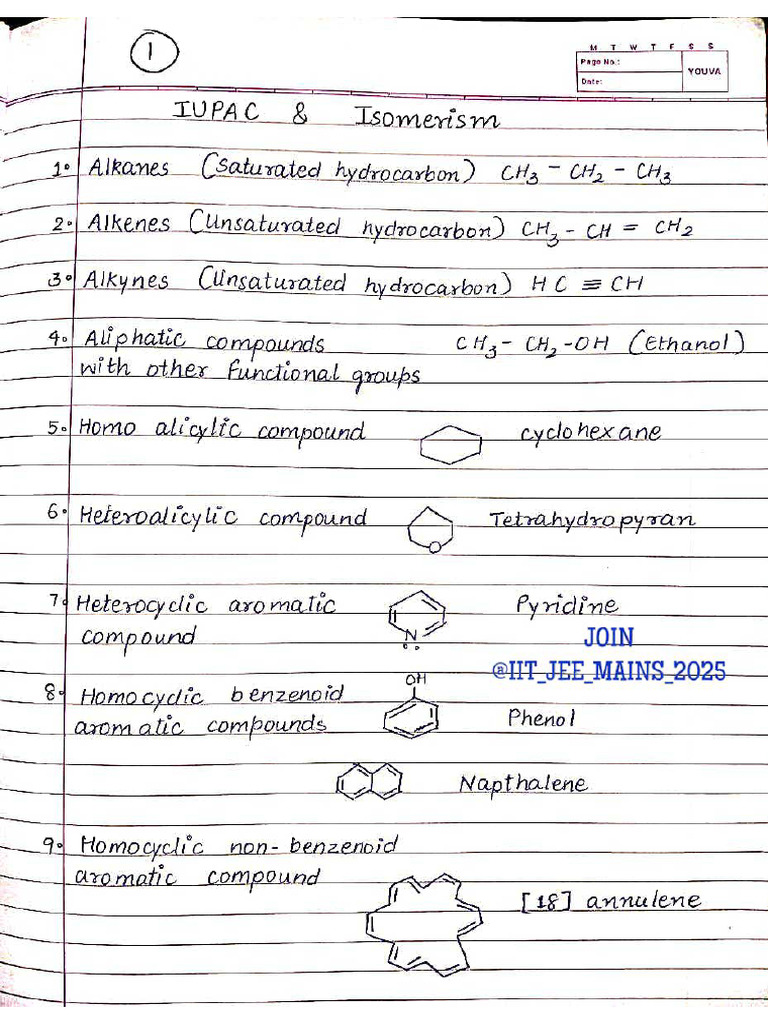 1
M T W T F S S
Page No.:
Date:
YOUVA
IUPAC & Isomerism
1. Alkanes (Saturated hydrocarbon) CH3 - CH2 - CH3
2. Alkenes (Unsaturated hydrocarbon) CH3 - CH = CH2
3. Alkynes (Unsaturated hydrocarbon) HC ≡ CH
4. Aliphatic compounds CH3 - CH2 -OH (Ethanol)
with other functional groups
5. Homo alicylic compound cyclohexane
6. Heteroalicylic compound Tetrahydropyran
O
7. Heterocyclic aromatic Pyridine
compound N
JOIN
@IIT_JEE_MAINS_2025
8. Homocyclic benzenoid OH
aromatic compounds Phenol
Napthalene
9. Homocyclic non-benzenoid
aromatic compound
[18] annulene